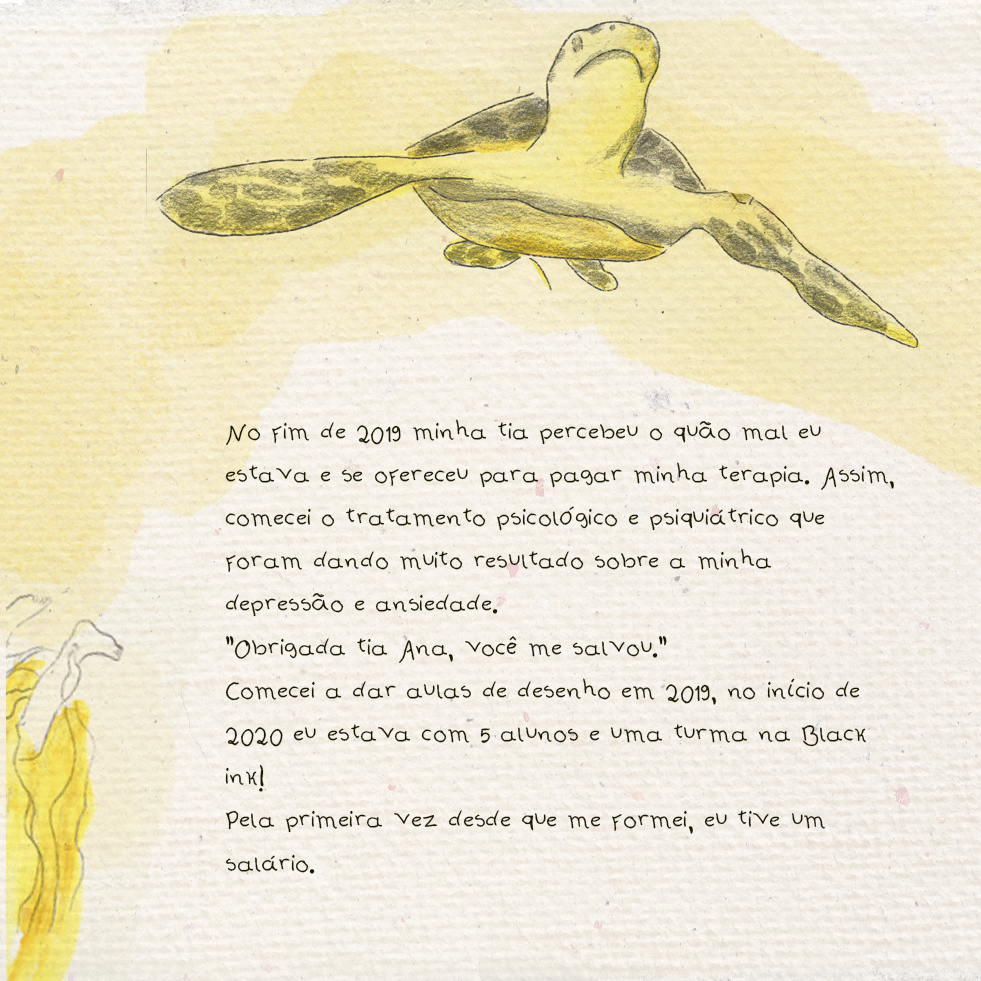 No fim de 2019 minha tia percebeu o quão mal eu
estava e se ofereceu para pagar minha terapia. Assim,
comecei o tratamento psicológico e psiquiátrico que
foram dando muito resultado sobre a minha
depressão e ansiedade.
"Obrigada tia Ana, você me salvou."
Comecei a dar aulas de desenho em 2019, no início de
2020 eu estava com 5 alunos e uma turma na Black
ink!
Pela primeira vez desde que me formei, eu tive um
salário.